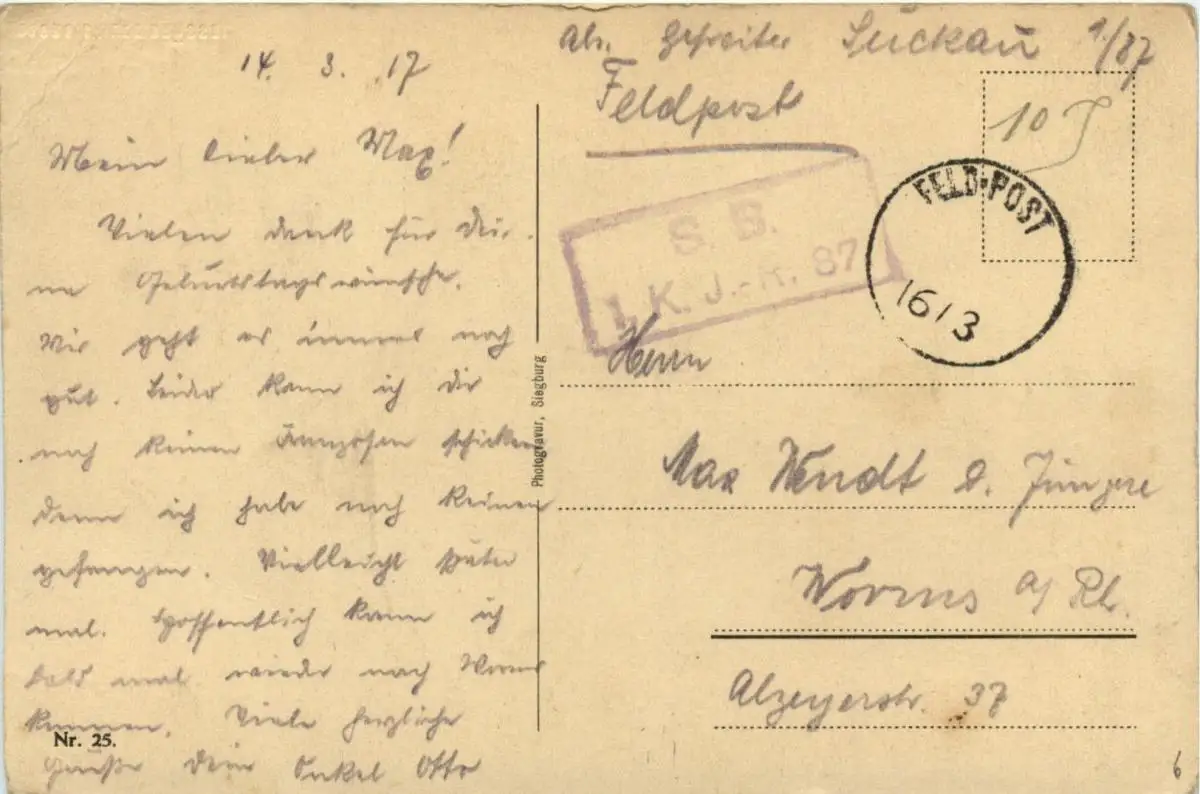 14. 3. 17
Mein lieber Max!
Vielen dank für Dei-
ne Geburtstagswünsche.
Mir geht es immer noch
gut. Leider kann ich dir
noch keinen Franzosen schicken
denn ich habe noch keinen
gefangen. Vielleicht später
mal. Hoffentlich kann ich
bald mal wieder nach Worms
kommen. Viele herzliche
Grüße dein Onkel Otto
Nr. 25.
Photogravur, Siegburg
Abs. Gefreiter Luckau 1/87
Feldpost
10
FELD-POST
16/3
S. B.
I. K. J.-R. 87
Herrn
Max Wendt d. Jüngere
Worms a/ Rh.
Alzeyerstr. 37
6